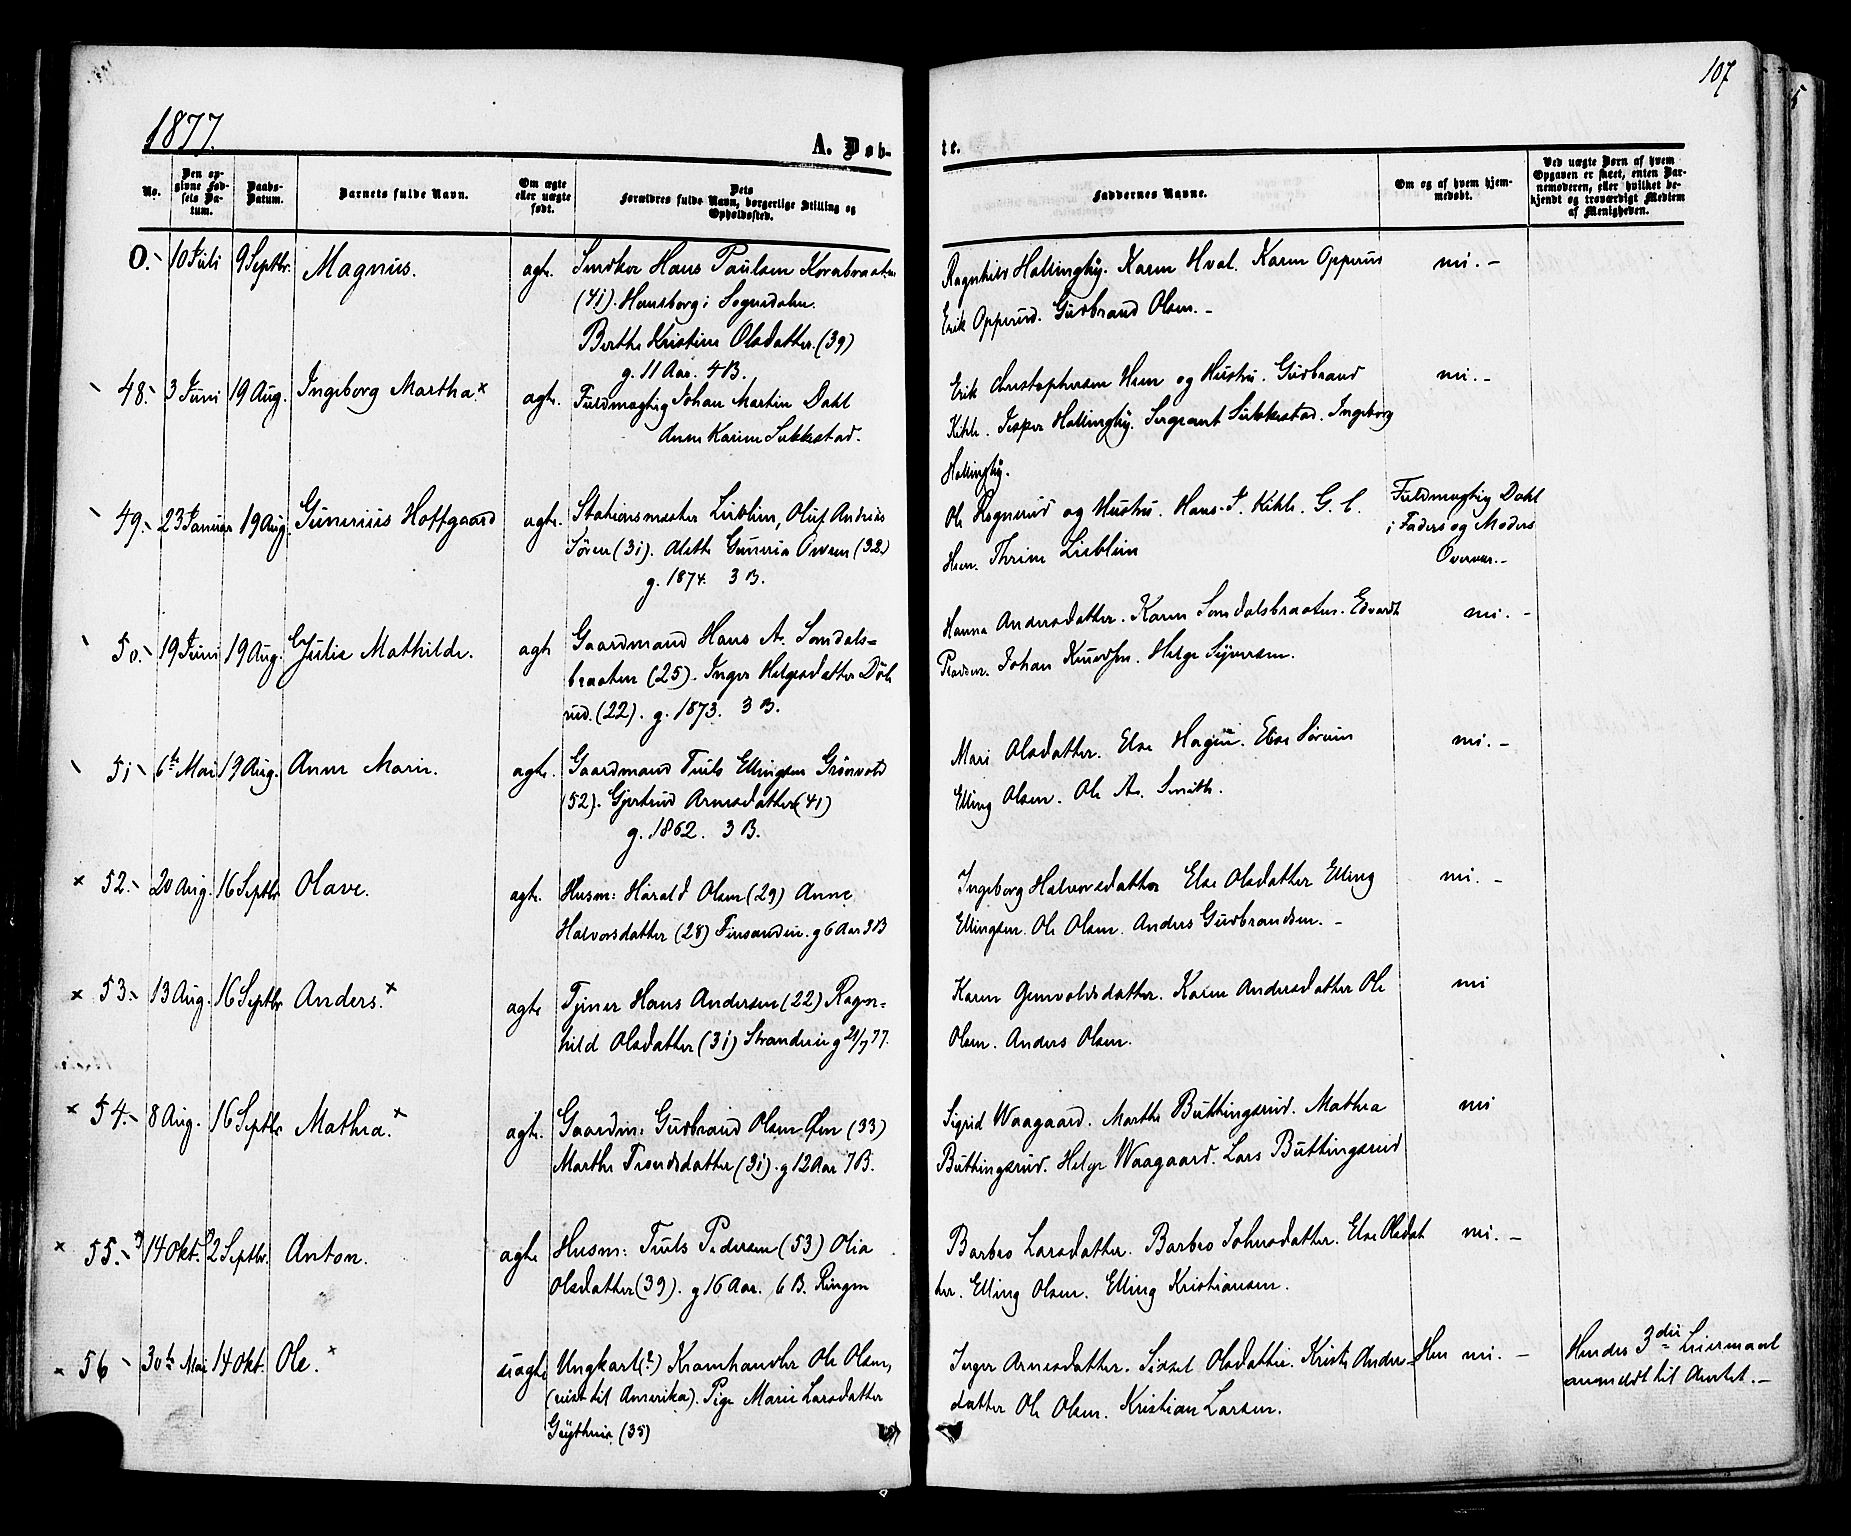 107
5
1877.
A. Døb-
te.
No.
Den op-
givne Fød-
sels Da-
tum.
Daabs-
Datum.
Barnets fulde Navn.
Om ægte
eller uægte
født.
Dets
Forældres fulde Navn, borgerlige Stilling og
Opholdssted.
Faddernes Navne.
Om og af hvem hjem-
medøbt.
Ved uægte Børn af hvem
Opgaven er skeet, enten Bar-
nemoderen, eller hvilket be-
kjendt og troværdigt Medlem
af Menigheden.
0. 10 Juli 9 Septbr. Magnus. ægte. Hans Paulsen
(41). i Sognedalen.
Berthe Kristine Olsdatter. (39)
g. 11 Aar. 4 B.
Ragnhild Hallingby. Karen Hval. Karen Opperud
Erik Opperud. Gudbrand Olsen. -
ni. -
48. 3 Juni 19 Aug. Ingeborg Martha x ægte. Fuldmægtig Johan Martin Dahl
Anne Karine Sukkestad.
Erik Christophersen Hem og Hustru. Gudbrand
Kihle. Jesper Hallingby. Sergeant Sukkestad. Ingeborg
Hallingby.
ni. -
49. 23 Januar 19 Aug. Gunerius Hoffgaard ægte. Stationsmester Lieblein, Oluf Andreas
Sören (31). Alethe Guneria Owsen (32)
g. 1874. 3 B.
Ole Rognerud og Hustru. Hans. J. Kihle. G. C.
Hem. Thrine Lieblein
Fuldmægtig Dahl
i Faders og Moders
Overvær. -
50. 19 Juni 19 Aug. Julie Mathilde. ægte Gaardmand Hans A. Somdals-
braaten (25). Inger Helgesdatter Döle
rud. (22). g. 1873. 3 B.
Hanna Andersdatter. Karen Somdalsbraaten. Edvardt
Johan Knudsen. Helge Syversen.
ni. -
51 6te Mai 19 Aug. Anne Marie. ægte. Gaardmand Truls Ellingsen Grönvold
(52). Gjertrud Arnesdatter (41)
g. 1862. 3 B.
Mari Olsdatter. Else Hagen. Else Sörum
Elling Olsen. Ole A. Smith.
ni. -
x 52. 20 Aug. 16 Septbr Olave. ægte. Husm: Harald Olsen (29) Anne
Halvorsdatter (28) Finsandeie. g 6 Aar 3 B
Ingeborg Halvorsdatter Else Olsdatter Elling
Ellingsen. Ole Olsen. Anders Gudbrandsen. -
ni. -
x 53. 13 Aug. 16 Septbr Anders. x ægte Tjener Hans Andersen (22) Ragn-
hild Olsdatter (31) Strandeie g 21/7 77.
Karen Gunvoldsdatter. Karen Andersdatter Ole
Olsen. Anders Olsen.
ni
x 54. 8 Aug. 16 Septbr Mathea. x ægte. Gaardm: Gudbrand Olsen Öen (33)
Marthe Trondsdatter (31). g 12 Aar 7 B.
Sigrid Waagaard. Marthe Buttingsrud. Mathea
Buttingsrud. Helge Waagaard. Lars Buttingsrud
ni
x 55. 14 Okt. 2 Septbr. Anton. ægte Husm: Truls Pedersen (53) Olia
Olsdatter (39). g 16 Aar. 6 B. Ringen
Barbro Larsdatter. Barbro Johnsdatter. Else Olsdat
ter. Elling Olsen. Elling Kristiansen.
ni. -
x 56 30te Mai 14 Okt. Ole. x uægte Ungkarl (?) Kramhandler Ole Olsen,
(reist til Amerika). Pige Marie Larsdatter
(35)
Inger Arnesdatter. Sidsel Olsdatter. Kristi Anders-
datter Ole Olsen. Kristian Larsen.
ni. -
Hendes 3die Leiermaal
anmeldt til Amtet. -